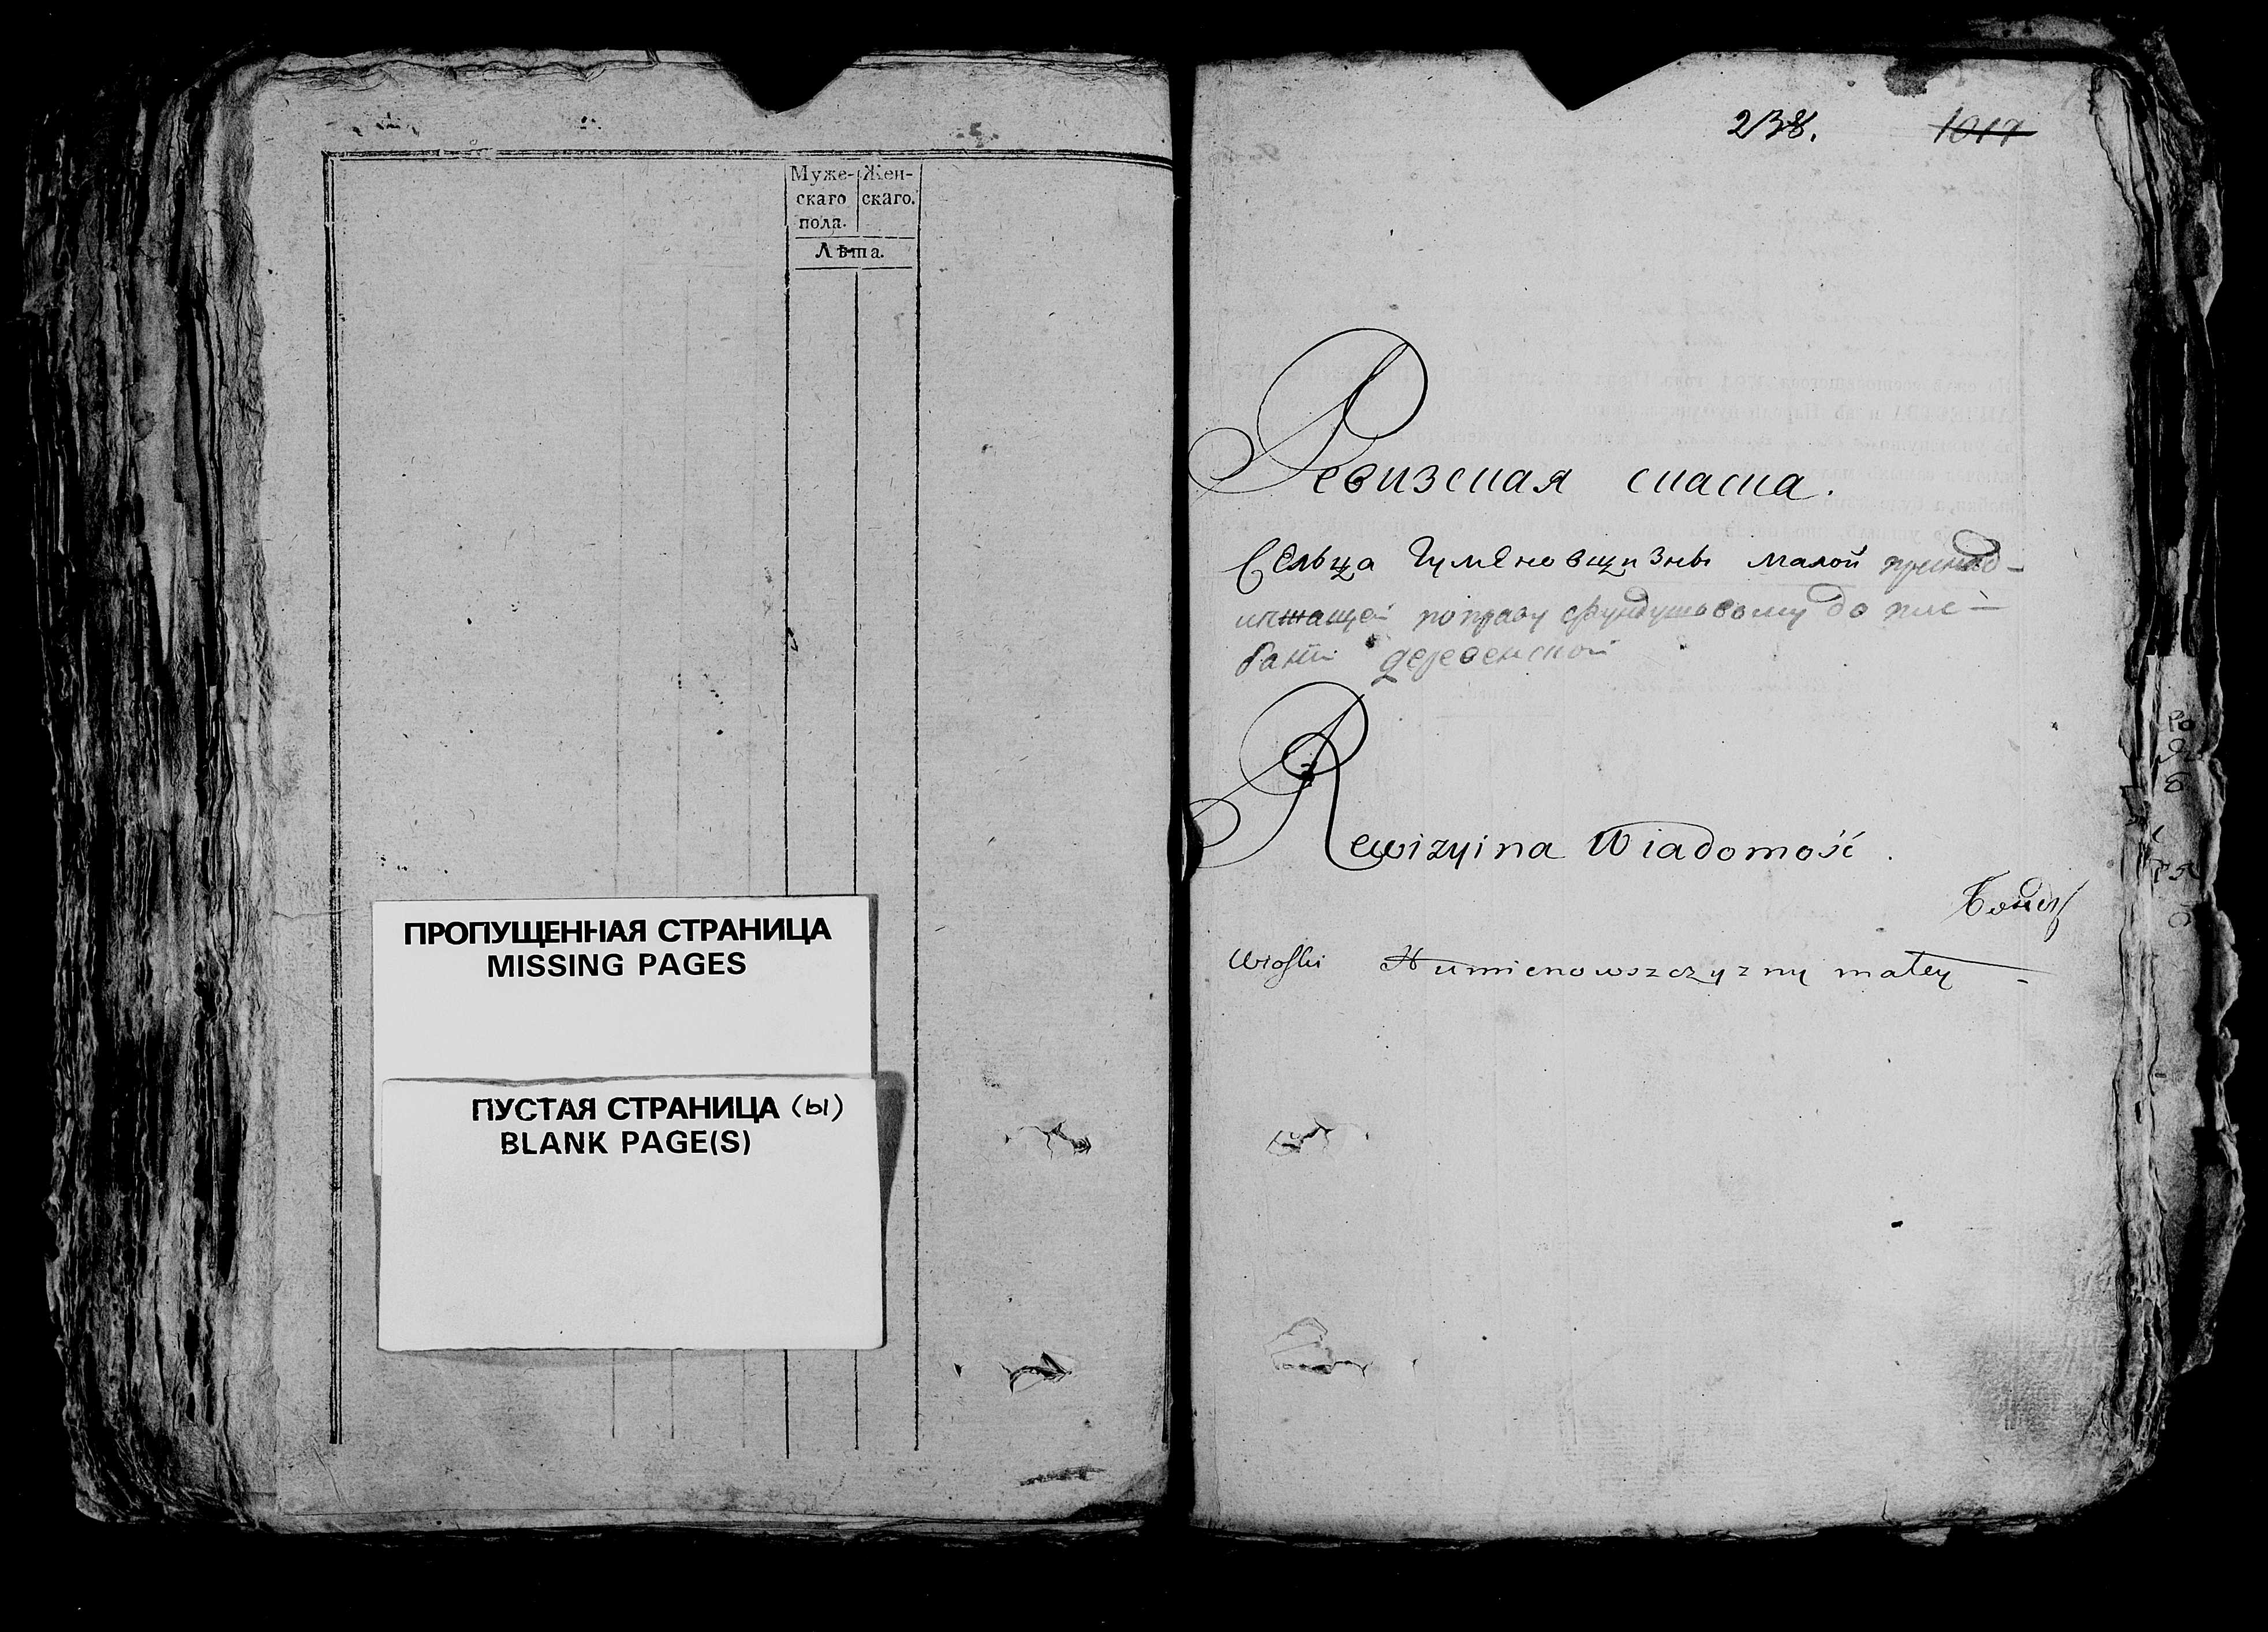 Муже-
скаго
пола.
Жен-
скаго.
Лѣта.
ПРОПУЩЕННАЯ СТРАНИЦА
MISSING PAGES
ПУСТАЯ СТРАНИЦА (ы)
BLANK PAGE(S)
238.
1017
Ревизская скаска.
Сельца Гумѣновщизны малой принад-
лѣжащей по праву фундушовому до пле-
банiи деревенской
Rewizyina Wiadomość.
Wioski Humienowszczyzny małey